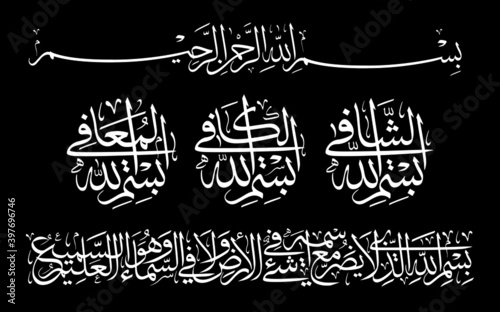 بِسْمِ اللهِ الرَّحْمٰنِ الرَّحِيْمِ
بِسْمِ اللهِ الشَّافِي بِسْمِ اللهِ الْكَافِي بِسْمِ اللهِ الْمُعَافِي
بِسْمِ اللهِ الَّذِي لَا يَضُرُّ مَعَ اسْمِهِ شَيْءٌ فِي الْأَرْضِ وَلَا فِي السَّمَاءِ وَهُوَ السَّمِيعُ الْعَلِيمُ
Adobe Stock | #397696746